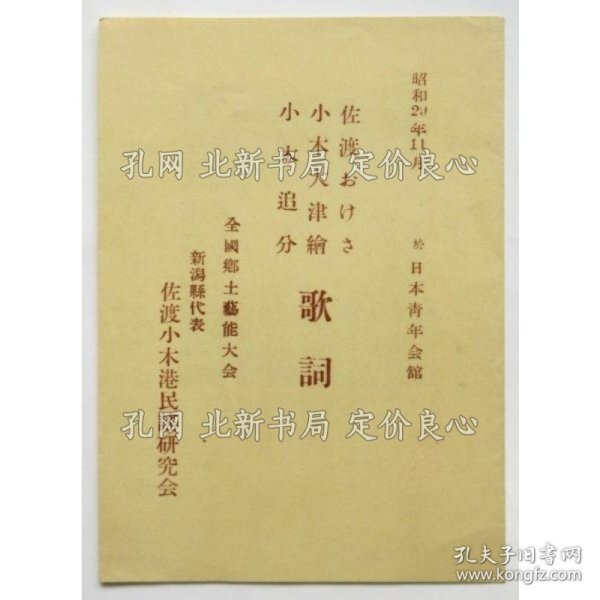 昭和29年11月
於 日本青年会舘
佐渡おけさ
小木大津繪
小木追分
歌詞
全國郷土藝能大会
新潟縣代表
佐渡小木港民謡研究会
孔网 北新书局 定价良心
孔网 北新书局 定价良心
孔网 北新书局 定价良心
孔夫子旧书网
www.kongfz.com